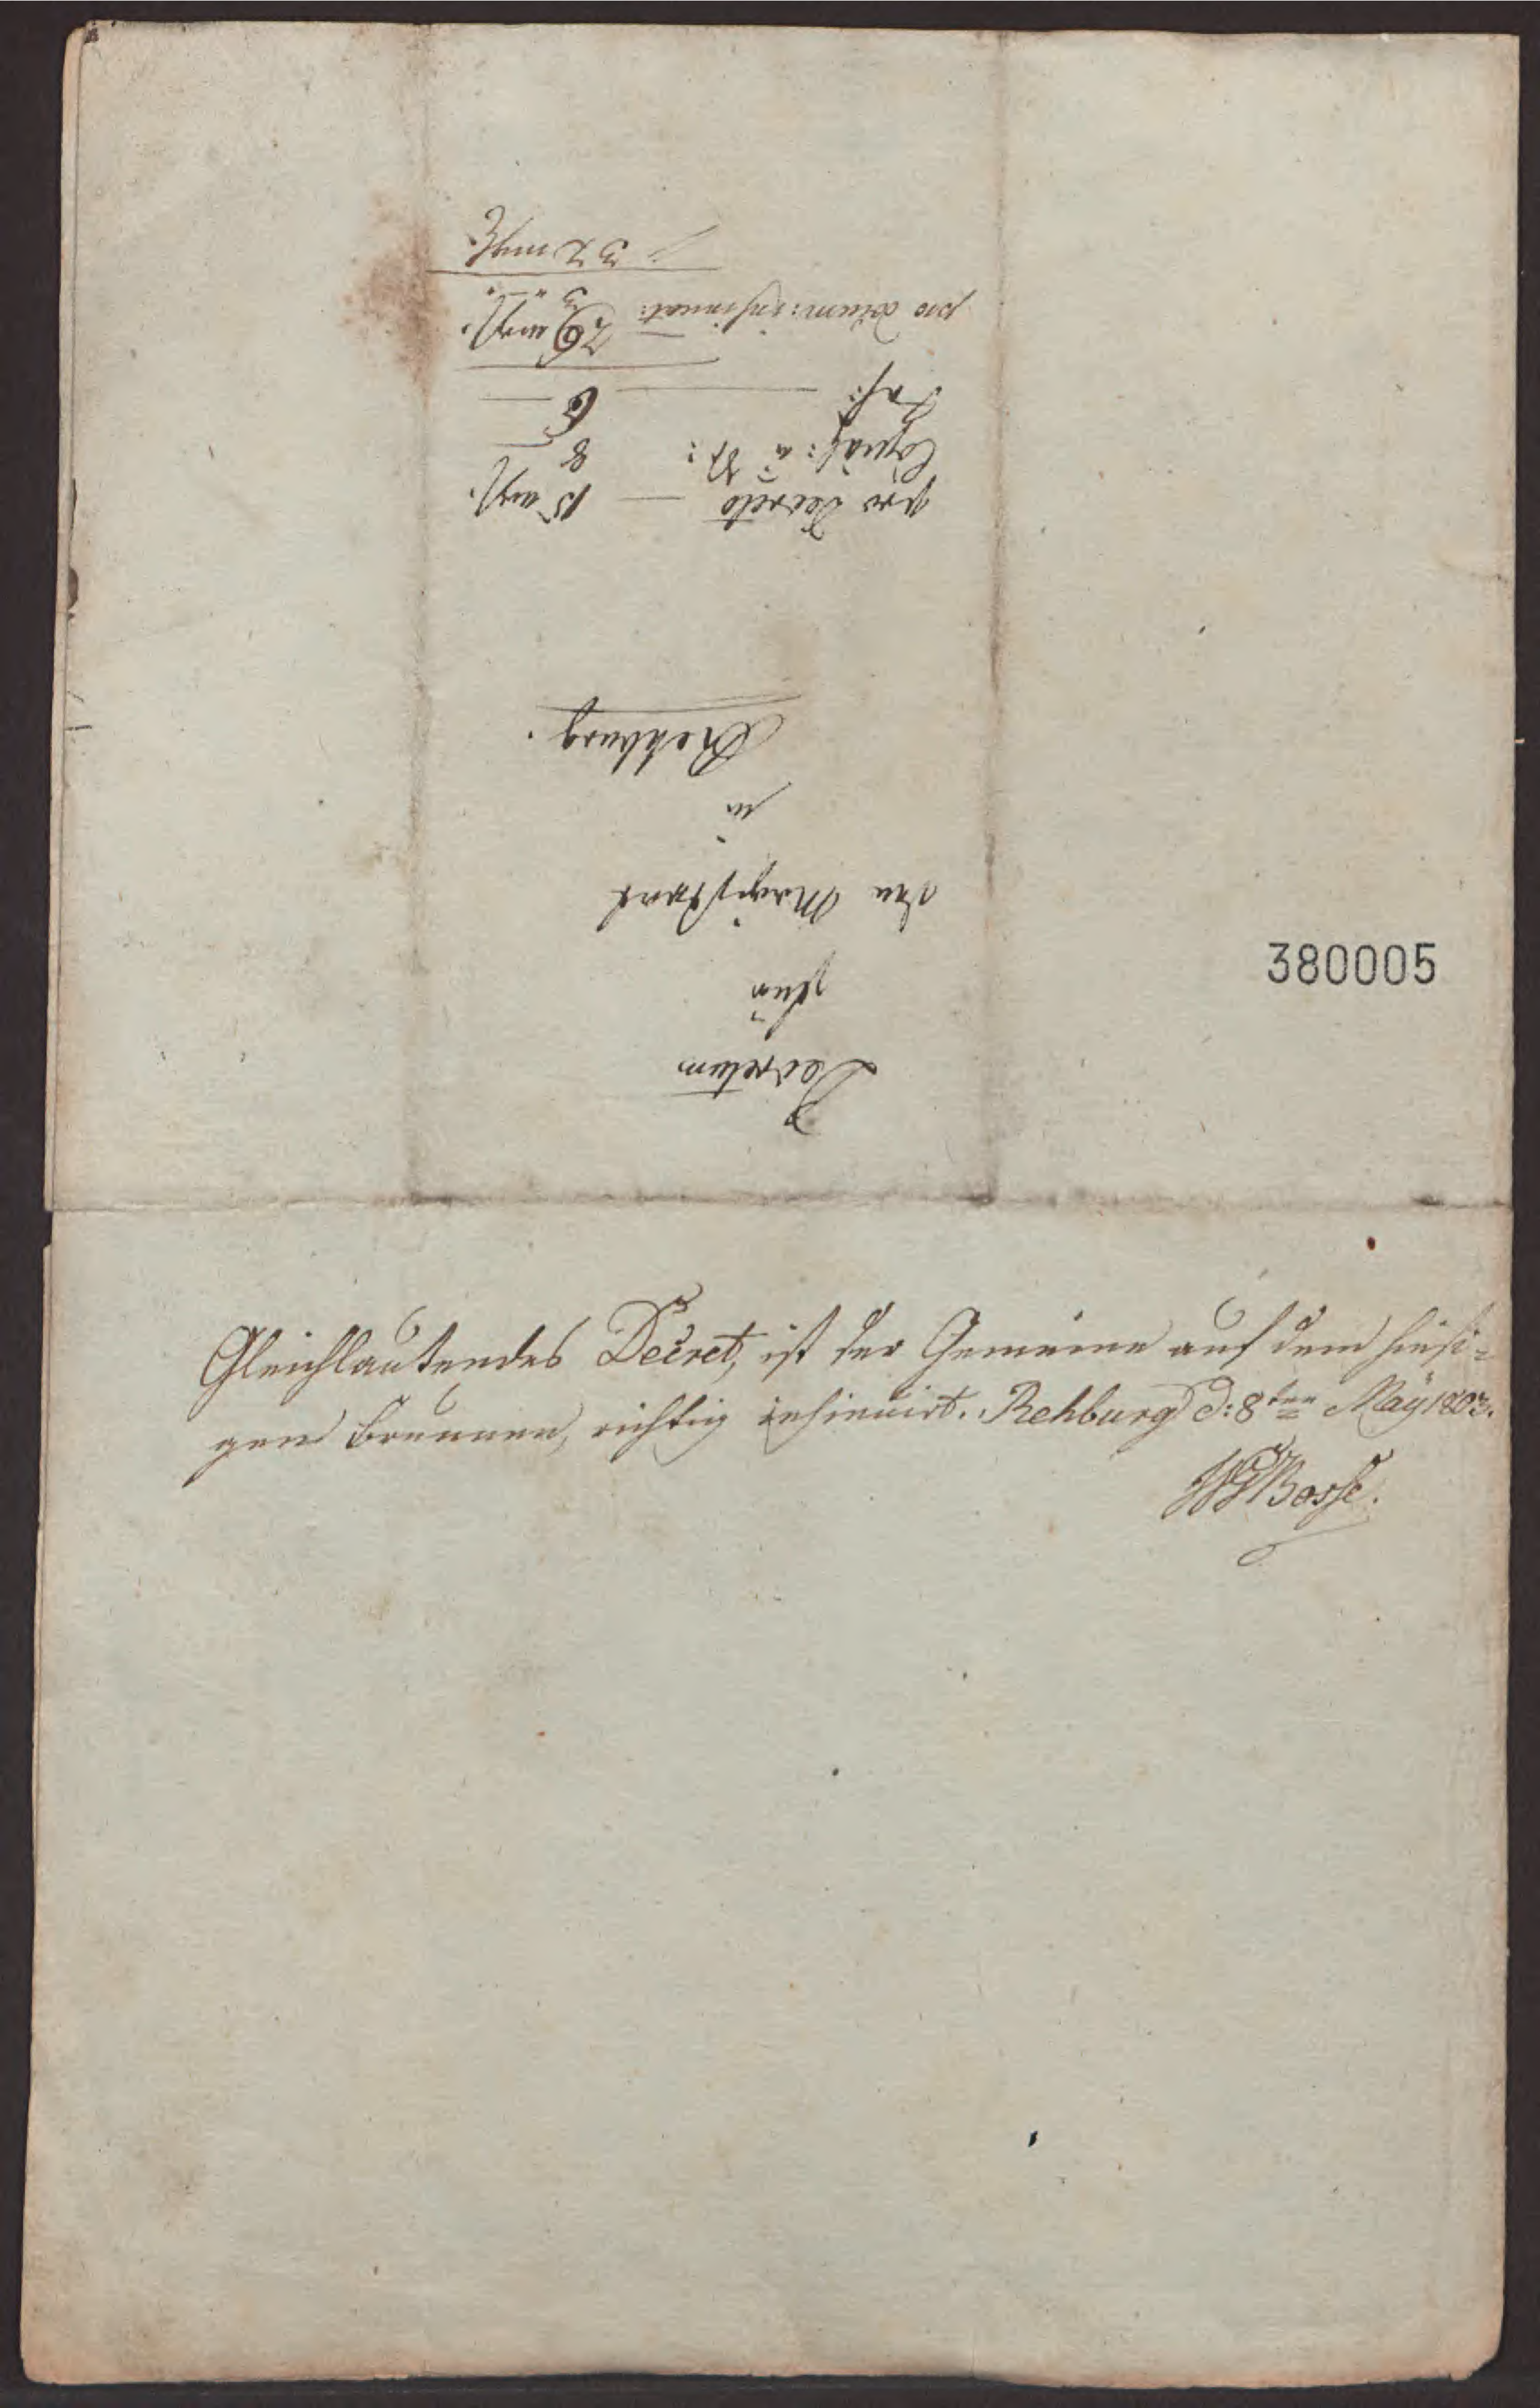 Decretum
für
den Magistrat
in
Rehburg.
pro Decreto — 15 mgl.
Copial: a 17: 8
Ins: — 6 —
pro decem: insinuat: 3
32 mgl
380005
Gleichlautendes Decret, ist der Gemeine auf dem hiesi=
gen Brunnen, richtig insinuirt. Rehburg d: 8ten May 1803.
Bosse.